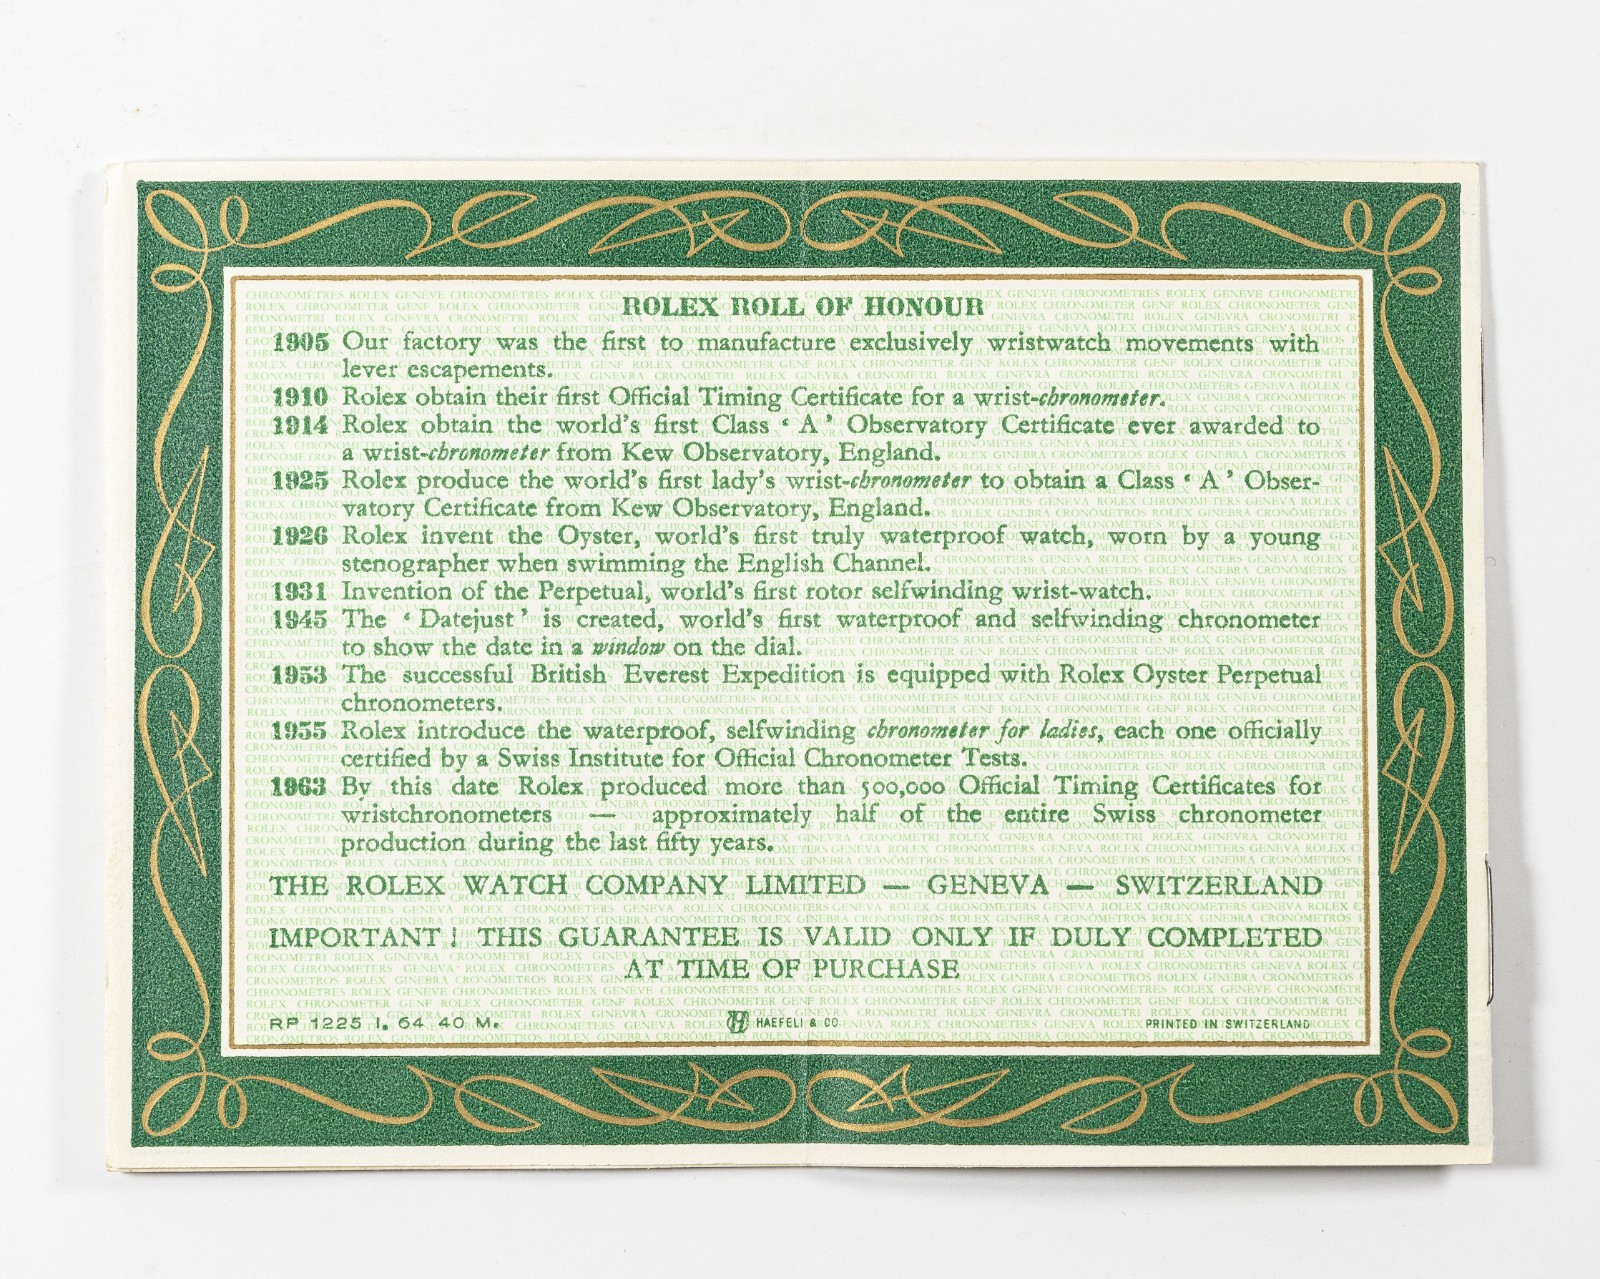 ROLEX ROLL OF HONOUR
1905 Our factory was the first to manufacture exclusively wristwatch movements with
lever escapements.
1910 Rolex obtain their first Official Timing Certificate for a wrist-chronometer.
1914 Rolex obtain the world's first Class ‘ A ’ Observatory Certificate ever awarded to
a wrist-chronometer from Kew Observatory, England.
1925 Rolex produce the world's first lady's wrist-chronometer to obtain a Class ‘ A ’ Obser-
vatory Certificate from Kew Observatory, England.
1926 Rolex invent the Oyster, world's first truly waterproof watch, worn by a young
stenographer when swimming the English Channel.
1931 Invention of the Perpetual, world's first rotor selfwinding wrist-watch.
1945 The ‘ Datejust ’ is created, world's first waterproof and selfwinding chronometer
to show the date in a window on the dial.
1953 The successful British Everest Expedition is equipped with Rolex Oyster Perpetual
chronometers.
1955 Rolex introduce the waterproof, selfwinding chronometer for ladies, each one officially
certified by a Swiss Institute for Official Chronometer Tests.
1963 By this date Rolex produced more than 500,000 Official Timing Certificates for
wristchronometers — approximately half of the entire Swiss chronometer
production during the last fifty years.
THE ROLEX WATCH COMPANY LIMITED — GENEVA — SWITZERLAND
IMPORTANT ! THIS GUARANTEE IS VALID ONLY IF DULY COMPLETED
AT TIME OF PURCHASE
RP 1225 I. 64 40 M. HAEFELI & CO PRINTED IN SWITZERLAND